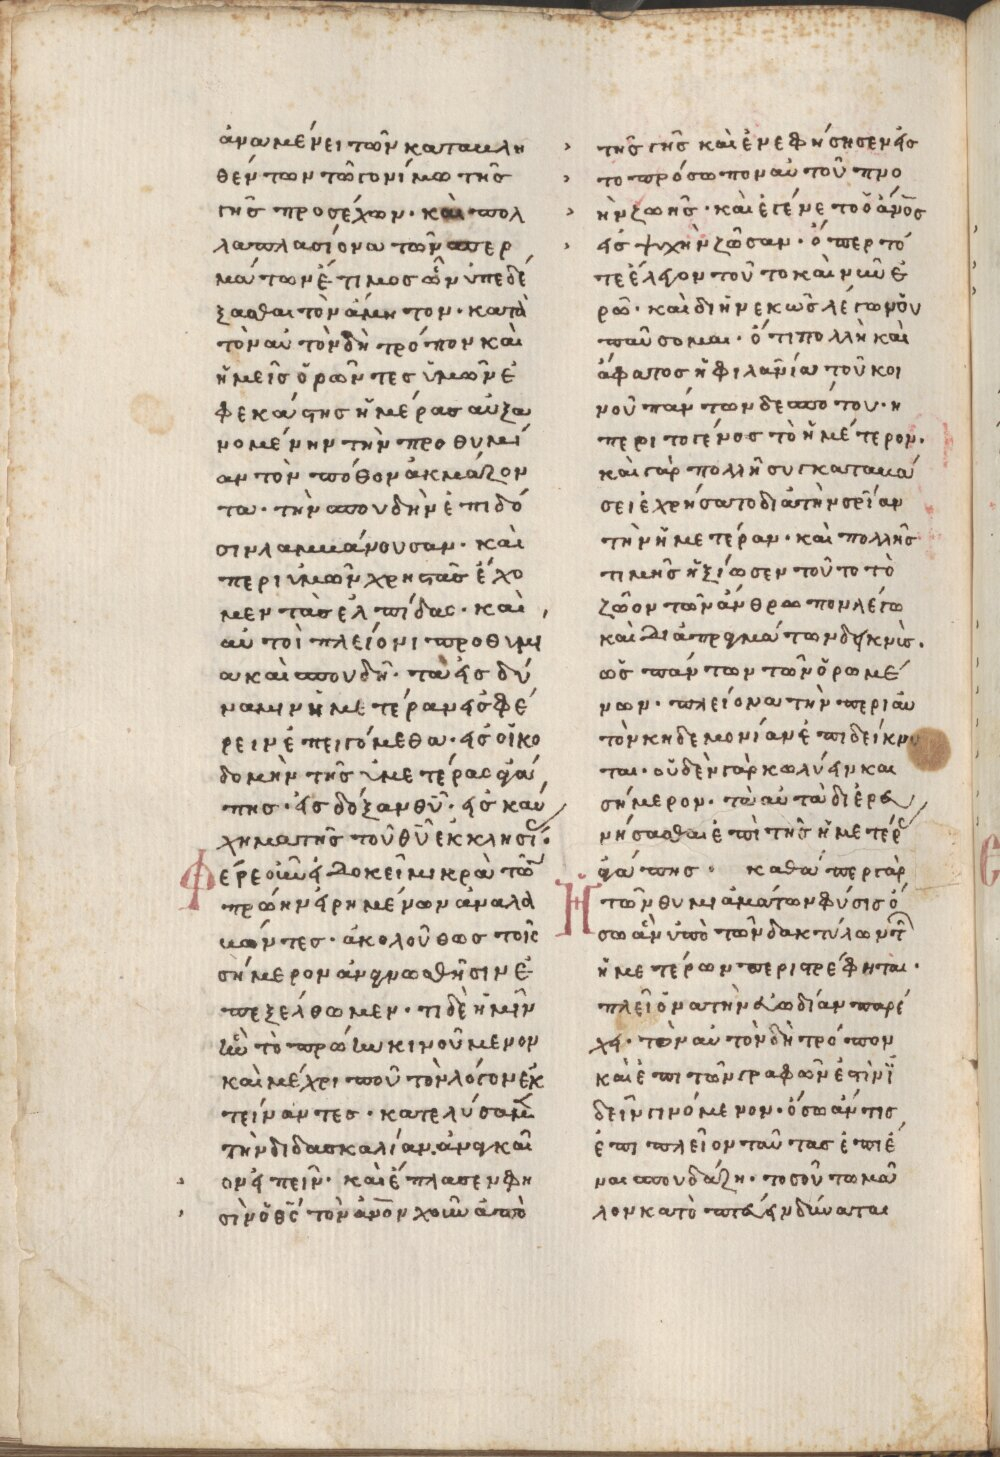 ἀναμένει τῶν καταβλη
θέντων τῶ γονίμω τῆς
γῆς προσέχων· καὶ πολ
λαπλασίονα τῶν σπερ
μάτων ἕτιμος ὢν ὑπεδέ
ξασθαι τὸν ἄμητον· κατὰ
τὸν αὐτὸν δὴ τρόπον καὶ
ἡμεῖς ὁρῶντες ὑμῶν ἐ
φ ἑκάστης ἡμέρας αὐξα
νομένην τὴν προθυμί
αν τὸν πόθον ἀκμάζον
τα· τὴν σπουδὴν ἐπίδο
σιν λαμβάνουσαν· καὶ
περι ὑμῶν χρηστὰς ἔχο
μεν τὰς ἐλπίδας· καὶ
αὐτοὶ πλείονι προθυμί
α καὶ σπουδῆ· τὰ εἰς δύ
ναμιν ἡμετέραν εἰσφέ
ρειν ἐπειγόμεθα· εἰς οἰκο
δομὴν τῆς ὑμετέρας ἀγά
πης· εἰς δόξαν θῦ· εἰς καύ
χημα τῆς τοῦ θῦ ἐκκλησί·
Φέρε οὖν εἰ δοκεῖ μικρὰ τῶν
πρώην εἰρημένων ἀναλα
βόντες· ἀκολούθως τοῖς
σήμερον ἀναγνωσθῆσιν ἐ
πεξέλθωμεν· τί δὲ ἡμῖν
ἦν τὸ πρώην κινούμενον
καὶ μέχρι ποῦ τὸν λόγον ἐκ
τείναντες· κατελύσαμεν
τὴν διδασκαλίαν· ἀναγκαῖ
ον εἰπεῖν· καὶ ἔπλασεν φη
σὶν ὁ θς τὸν ἀνον χοῦν ἀπὸ
τῆς γῆς καὶ ἐνεφήσησεν εἰς
το πρόσωπον αὐτοῦ πνο
ὴν ζωῆς· καὶ ἐγένετο ὁ ἀνος
εἰς ψυχὴν ζῶσαν· ὅπερ τό
τε ἔλεγον τοῦτο καὶ νῦν ἐ
ρῶ· καὶ διηνεκῶς λέγων οὐ
παύσομαι· ὅτι πολλὴ καὶ
ἄφατος ἡ φιλανία τοῦ κοι
νοῦ πάντων δεσπότου· ἡ
περι το γένος τὸ ἡμέτερον·
καὶ γὰρ πολλῆ συγκαταβά
σει ἐχρήσατο διὰ τὴν σρίαν
τὴν ἡμετέραν· καὶ πολλῆς
τιμῆς ἠξίωσεν τοῦτο τὸ
ζῶον τῶν ἄνθρωπον λέγω
καὶ διὰ πραγμάτων δεικνὺς·
ὡς πάντων τῶν ὁρωμέ
νων· πλείονα τὴν περι αὐ
τὸν κηδεμονίαν ἐπιδείκνυ
ται· οὐδὲν γὰρ κωλύει καὶ
σήμερον· τὰ αὐτὰ διερευ
νήσασθαι ἐπὶ τῆς ἡμετέρας
ἀγάπης· καθάπερ γὰρ
Ἡ τῶν θυμιαμάτων φύσις ὅ
σω ἂν ὑπὸ τῶν δακτύλων τῶν
ἡμετέρων περιτρέφηται·
πλείονα τὴν εὐωδίαν παρέ
χει· τὸν αὐτὸν δὴ τρόπον
καὶ ἐπι τῶν γραφῶν ἐστὶν ἰ
δεῖν γινόμενον· ὅσω ἄν τις
ἐπι πλεῖον ταύτας ἐπιέ
ναι σπουδάζη· τοσούτω μᾶλ
λον κατοπτεύειν δύναται